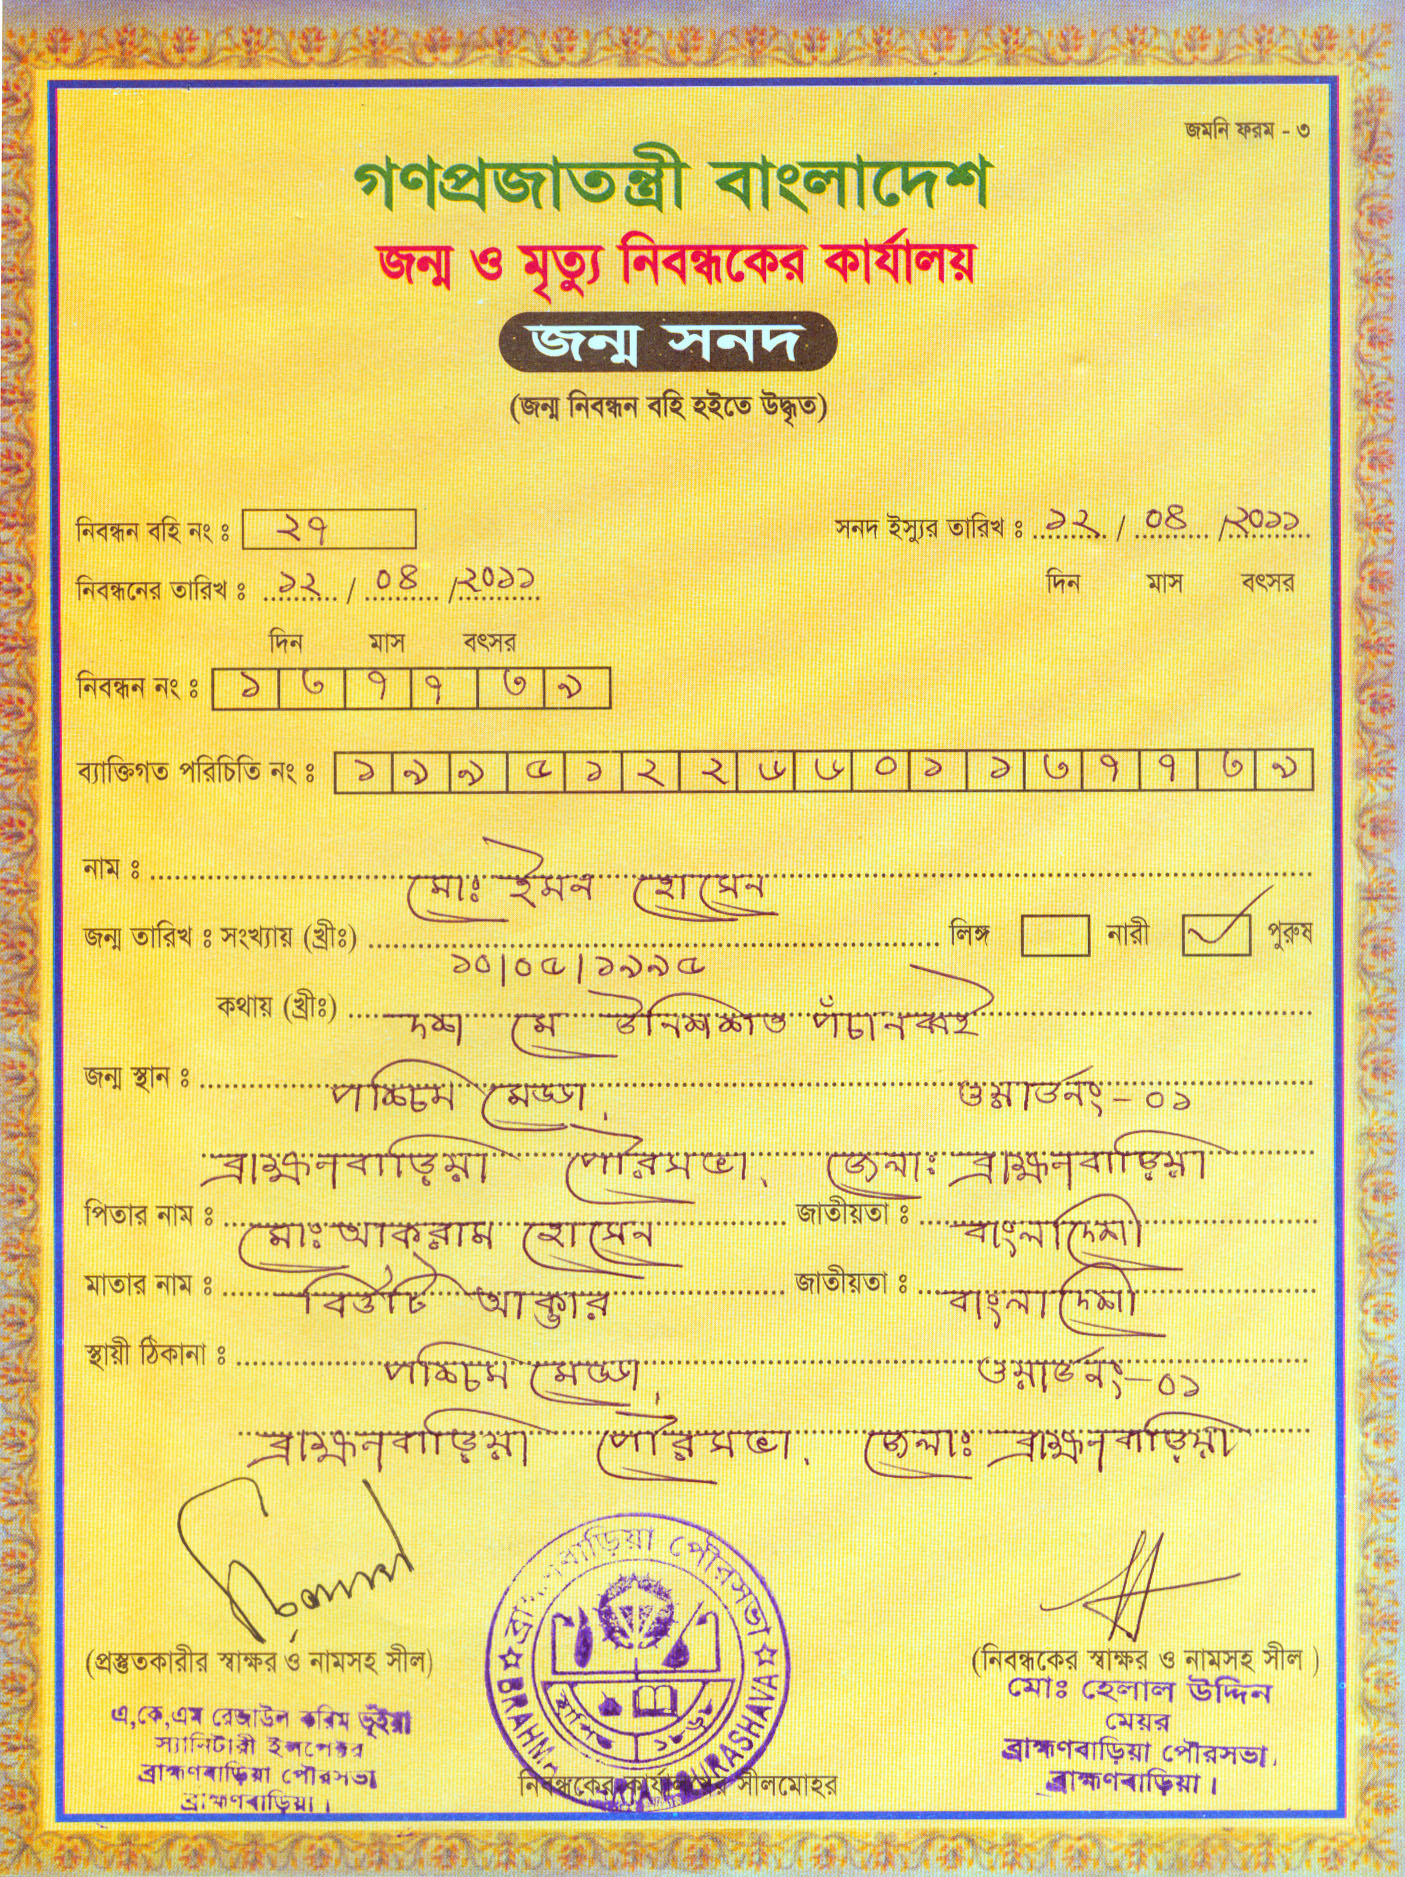 জমনি ফরম - ৩
গণপ্রজাতন্ত্রী বাংলাদেশ
জন্ম ও মৃত্যু নিবন্ধকের কার্যালয়
জন্ম সনদ
(জন্ম নিবন্ধন বহি হইতে উদ্ধৃত)
নিবন্ধন বহি নং ঃ ২৭ সনদ ইস্যুর তারিখ ঃ ১২ / ০৪ / ২০১১
নিবন্ধনের তারিখ ঃ ১২ / ০৪ / ২০১১ দিন মাস বৎসর
দিন মাস বৎসর
নিবন্ধন নং ঃ ১৩৭৭৩৯
ব্যাক্তিগত পরিচিতি নং ঃ ১৯৯৫১২২৬৬০১১৩৭৭৩৯
নাম ঃ মোঃ ইমন হোসেন
জন্ম তারিখ ঃ সংখ্যায় (খ্রীঃ) ১০/০৫/১৯৯৫ লিঙ্গ নারী ✓ পুরুষ
কথায় (খ্রীঃ) দশ মে উনিশশত পঁচানব্বই
জন্ম স্থান ঃ পশ্চিম মেড্ডা, ওয়ার্ডনং-০১
ব্রাহ্মনবাড়িয়া পৌরসভা, জেলাঃ ব্রাহ্মনবাড়িয়া
পিতার নাম ঃ মোঃ আকরাম হোসেন জাতীয়তা ঃ বাংলাদেশী
মাতার নাম ঃ বিউটি আক্তার জাতীয়তা ঃ বাংলাদেশী
স্থায়ী ঠিকানা ঃ পশ্চিম মেড্ডা, ওয়ার্ডনং-০১
ব্রাহ্মনবাড়িয়া পৌরসভা, জেলাঃ ব্রাহ্মনবাড়িয়া
(প্রস্তুতকারীর স্বাক্ষর ও নামসহ সীল) (নিবন্ধকের স্বাক্ষর ও নামসহ সীল )
এ,কে,এম রেজাউল করিম ভূঁইয়া
স্যানিটারী ইন্সপেক্টর
ব্রাহ্মণবাড়িয়া পৌরসভা
ব্রাহ্মণবাড়িয়া।
ব্রাহ্মণবাড়িয়া পৌরসভা
স্থাপিত ১৮৬৮
নিবন্ধকের কার্যালয়ের সীলমোহর
মোঃ হেলাল উদ্দিন
মেয়র
ব্রাহ্মণবাড়িয়া পৌরসভা,
ব্রাহ্মণবাড়িয়া।